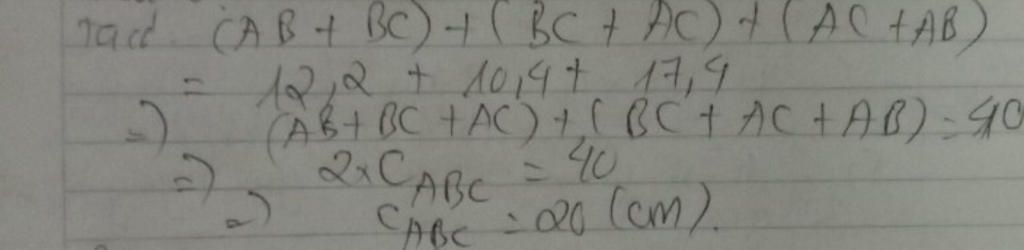 (AB + BC) + (BC + AC) + (AC + AB)
= 12,2 + 10,4 + 17,4
=) (AB + BC + AC) + (BC + AC + AB) = 40
=) 2 x C ABC = 40
=) C ABC = 20 (cm).